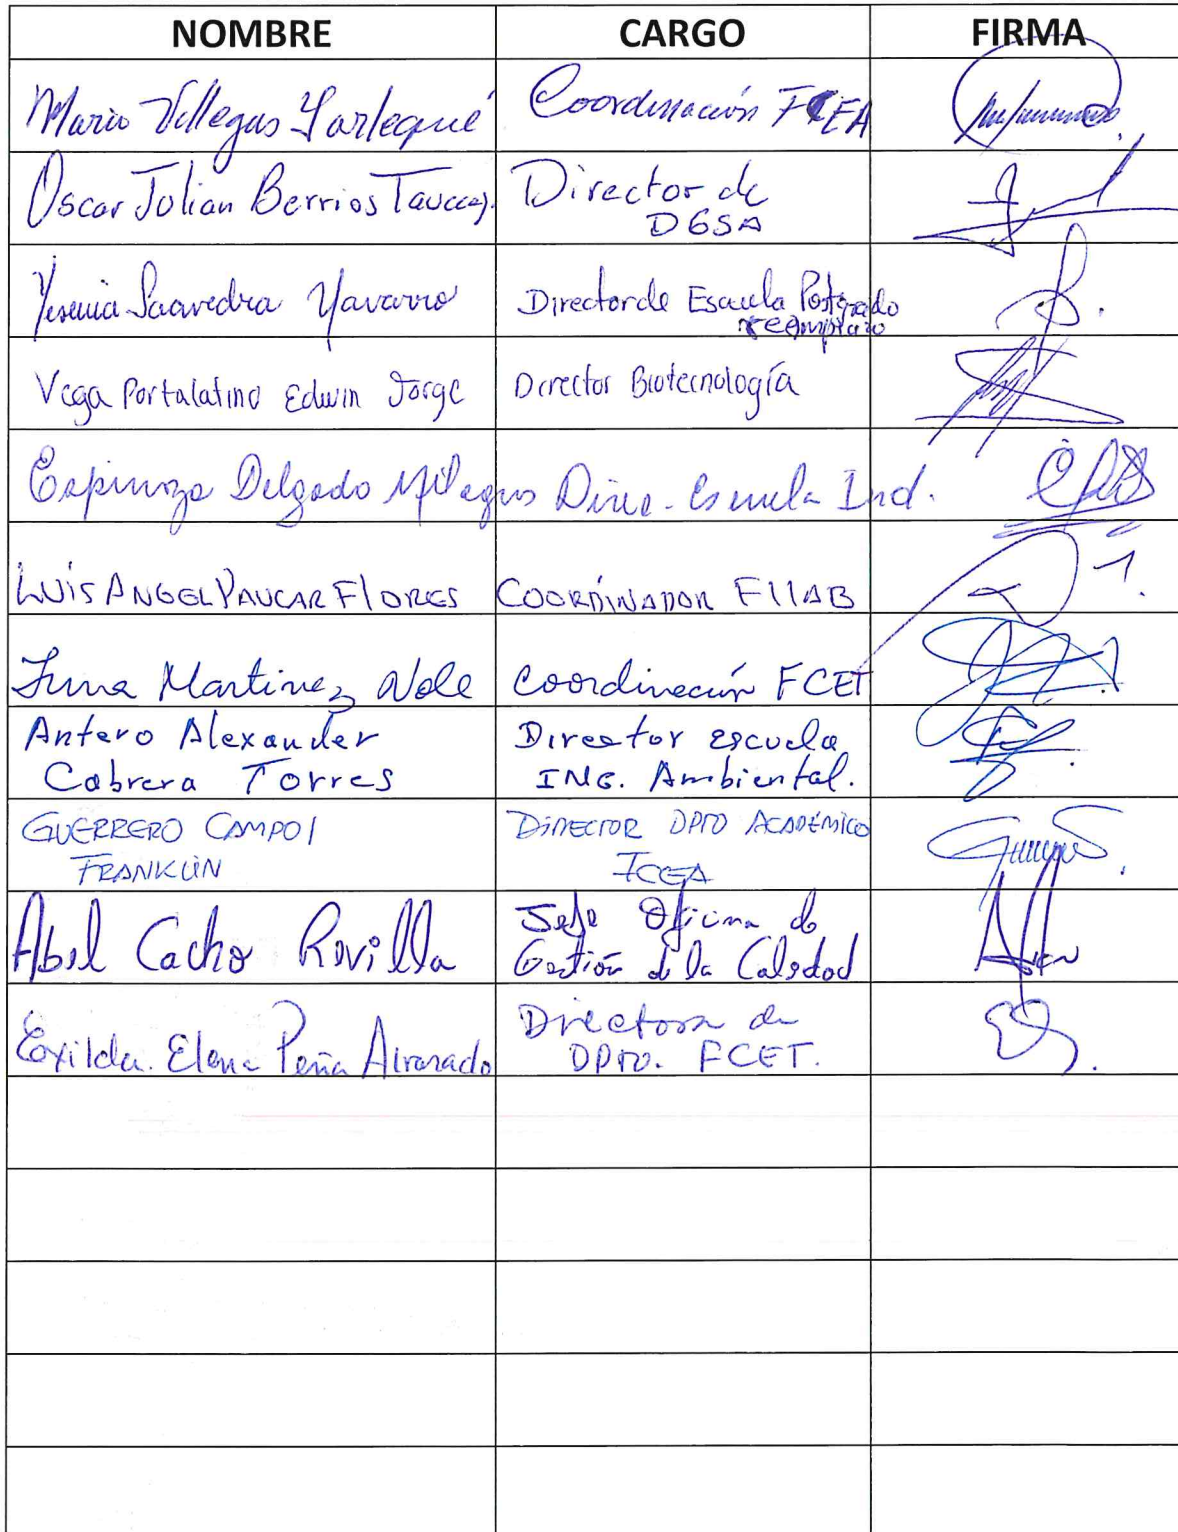 NOMBRE CARGO FIRMA
Mario Villegas Yarlequé Coordinación FCEA
Oscar Julian Berrios Taucaya Director de
DGSA
Yesenia Saavedra Navarro Director de Escuela Postgrado
reemplazo
Vega Portalatino Edwin Jorge Director Biotecnología
Espinoza Delgado Milagros Direc. Escuela Ind.
LUIS ANGEL PAUCAR FLORES COORDINADOR FIIAB
Martinez Nole Coordinación FCET
Antero Alexander Director escuela
Cabrera Torres ING. Ambiental.
GUERRERO CAMPOS DIRECTOR DPTO ACADÉMICO
FRANKLIN FCEA
Abel Cacho Revilla Jefe Oficina de
Gestión de la Calidad
Exilda Elena Peña Alvarado Directora de
DPTO. FCET.